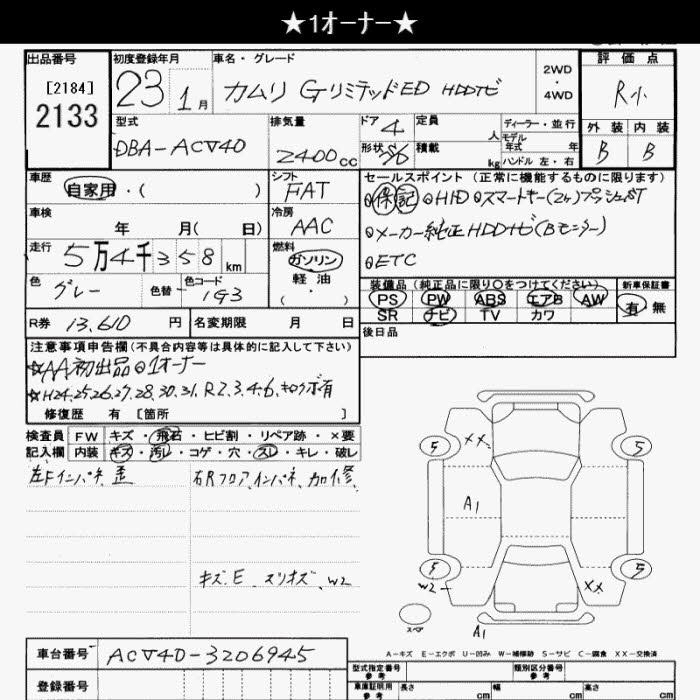 ★1オーナー★
出品番号
[2184]
2133
初度登録年月
23 1月
車名・グレード
カムリ GリミテッドED HDDナビ
2WD
・
4WD
評価点
R小
外装 内装
B B
型式
DBA-ACV40
排気量
2400cc
ドア 4
形状
定員 人
積載 kg
ディーラー・並行
モデル年式 年
ハンドル 左・右
車歴
自家用・( )
シフト
FAT
車検
年 月( 日)
冷房
AAC
走行
5万4千358km
燃料
ガソリン
軽油
( ・ )
色
グレー
色替 -
色コード
1G3
R券 13,610円
名変期限 月 日
セールスポイント (正常に機能するものに限ります)
⊙保記 ⊙HID ⊙スマートキー(2ヶ)プッシュST
⊙メーカー純正HDDナビ(Bモニター)
⊙ETC
装備品(純正品に限り○をつけてください)
PS PW ABS エアB AW
SR ナビ TV カワ
新車保証書
有 無
後日品
注意事項申告欄(不具合内容等は具体的に記入して下さい)
☆AA初出品⊙1オーナー
☆H24.25.26.27.28.30.31.R2.3.4.6.キロクボ有
修復歴 有 [箇所 ]
検査員 FW キズ・飛石・ヒビ割・リペア跡・×要
記入欄 内装 キズ・汚レ・コゲ・穴・スレ・キレ・破レ
左Fインパネ歪
右Rフロア、インパネ、加修、
キズ、E、スリキズ、W2
5 XX 5
A1
5 5
W2 XX
スペア
A1
A-キズ E-エクボ U-凹み W-補修跡 S-サビ C-腐食 XX-交換済
車台番号 ACV40-3206945
登録番号
型式指定番号
参考
類別区分番号
参考
車庫証明用
参考
長さ cm 幅 cm 高さ cm